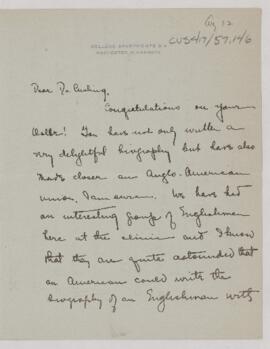 Aug 12
CUS417/57.146
COLLEGE APARTMENTS
ROCHESTER, MINNESOTA
Dear Dr Cushing,
Congratulations on your
Osler! You have not only written a
very delightful biography but have also
made closer an Anglo-American
union, I am sure. We have had
an interesting group of Englishmen
here at the clinic and I know
that they are quite astounded that
an American could write the
biography of an Englishman with